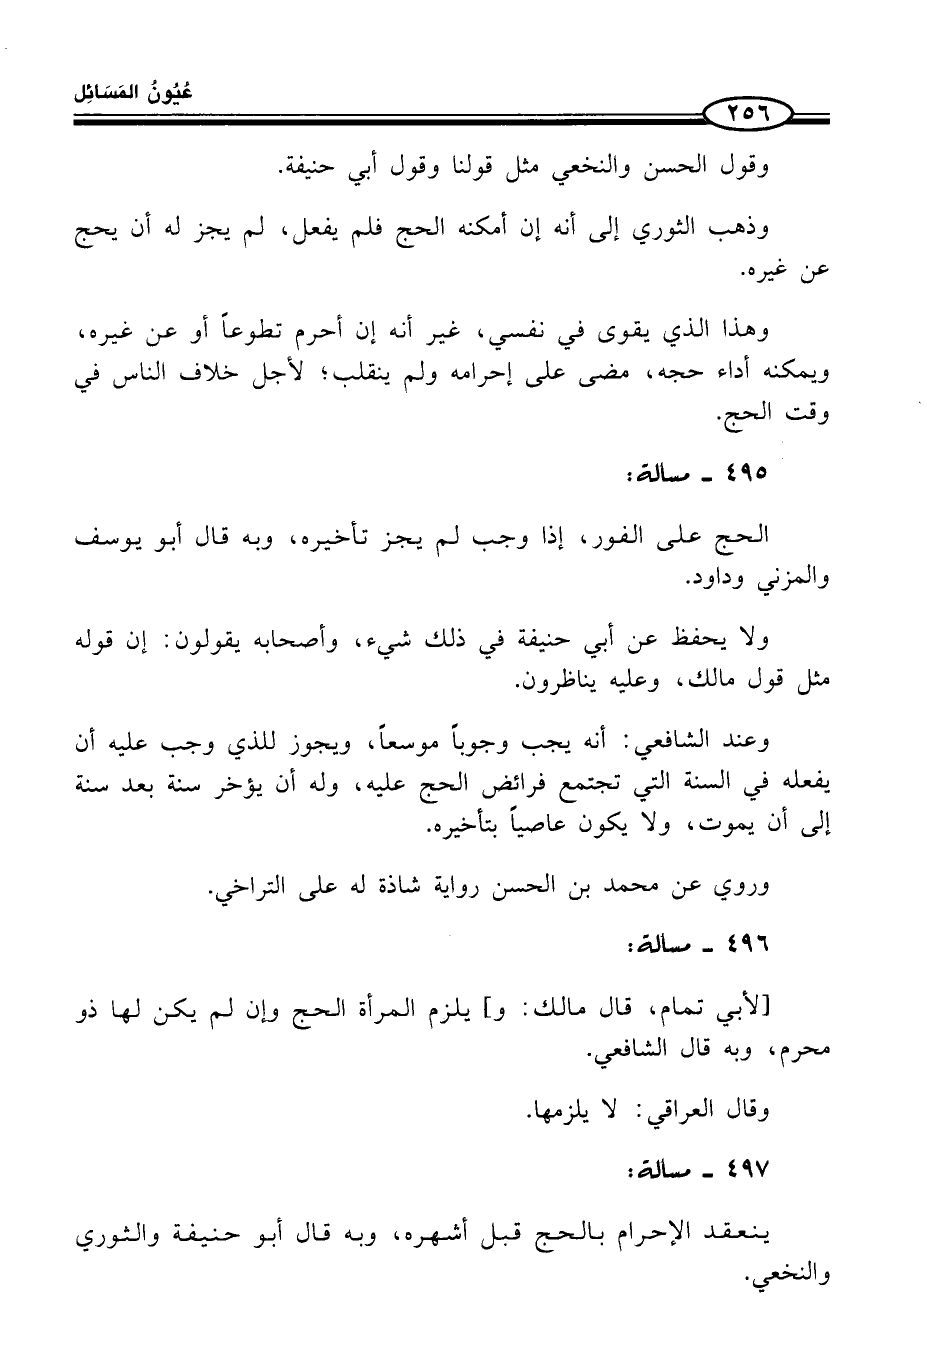 عُيُونُ المَسَائِل
٢٥٦
وقول الحسن والنخعي مثل قولنا وقول أبي حنيفة.
وذهب الثوري إلى أنه إن أمكنه الحج فلم يفعل، لم يجز له أن يحج
عن غيره.
وهذا الذي يقوى في نفسي، غير أنه إن أحرم تطوعاً أو عن غيره،
ويمكنه أداء حجه، مضى على إحرامه ولم ينقلب؛ لأجل خلاف الناس في
وقت الحج.
٤٩٥ ـ مسالة:
الحج على الفور، إذا وجب لم يجز تأخيره، وبه قال أبو يوسف
والمزني وداود.
ولا يحفظ عن أبي حنيفة في ذلك شيء، وأصحابه يقولون: إن قوله
مثل قول مالك، وعليه يناظرون.
وعند الشافعي: أنه يجب وجوباً موسعاً، ويجوز للذي وجب عليه أن
يفعله في السنة التي تجتمع فرائض الحج عليه، وله أن يؤخر سنة بعد سنة
إلى أن يموت، ولا يكون عاصياً بتأخيره.
وروي عن محمد بن الحسن رواية شاذة له على التراخي.
٤٩٦ ـ مسالة:
[لأبي تمام، قال مالك: و] يلزم المرأة الحج وإن لم يكن لها ذو
محرم، وبه قال الشافعي.
وقال العراقي: لا يلزمها.
٤٩٧ ـ مسالة:
ينعقد الإحرام بالحج قبل أشهره، وبه قال أبو حنيفة والثوري
والنخعي.